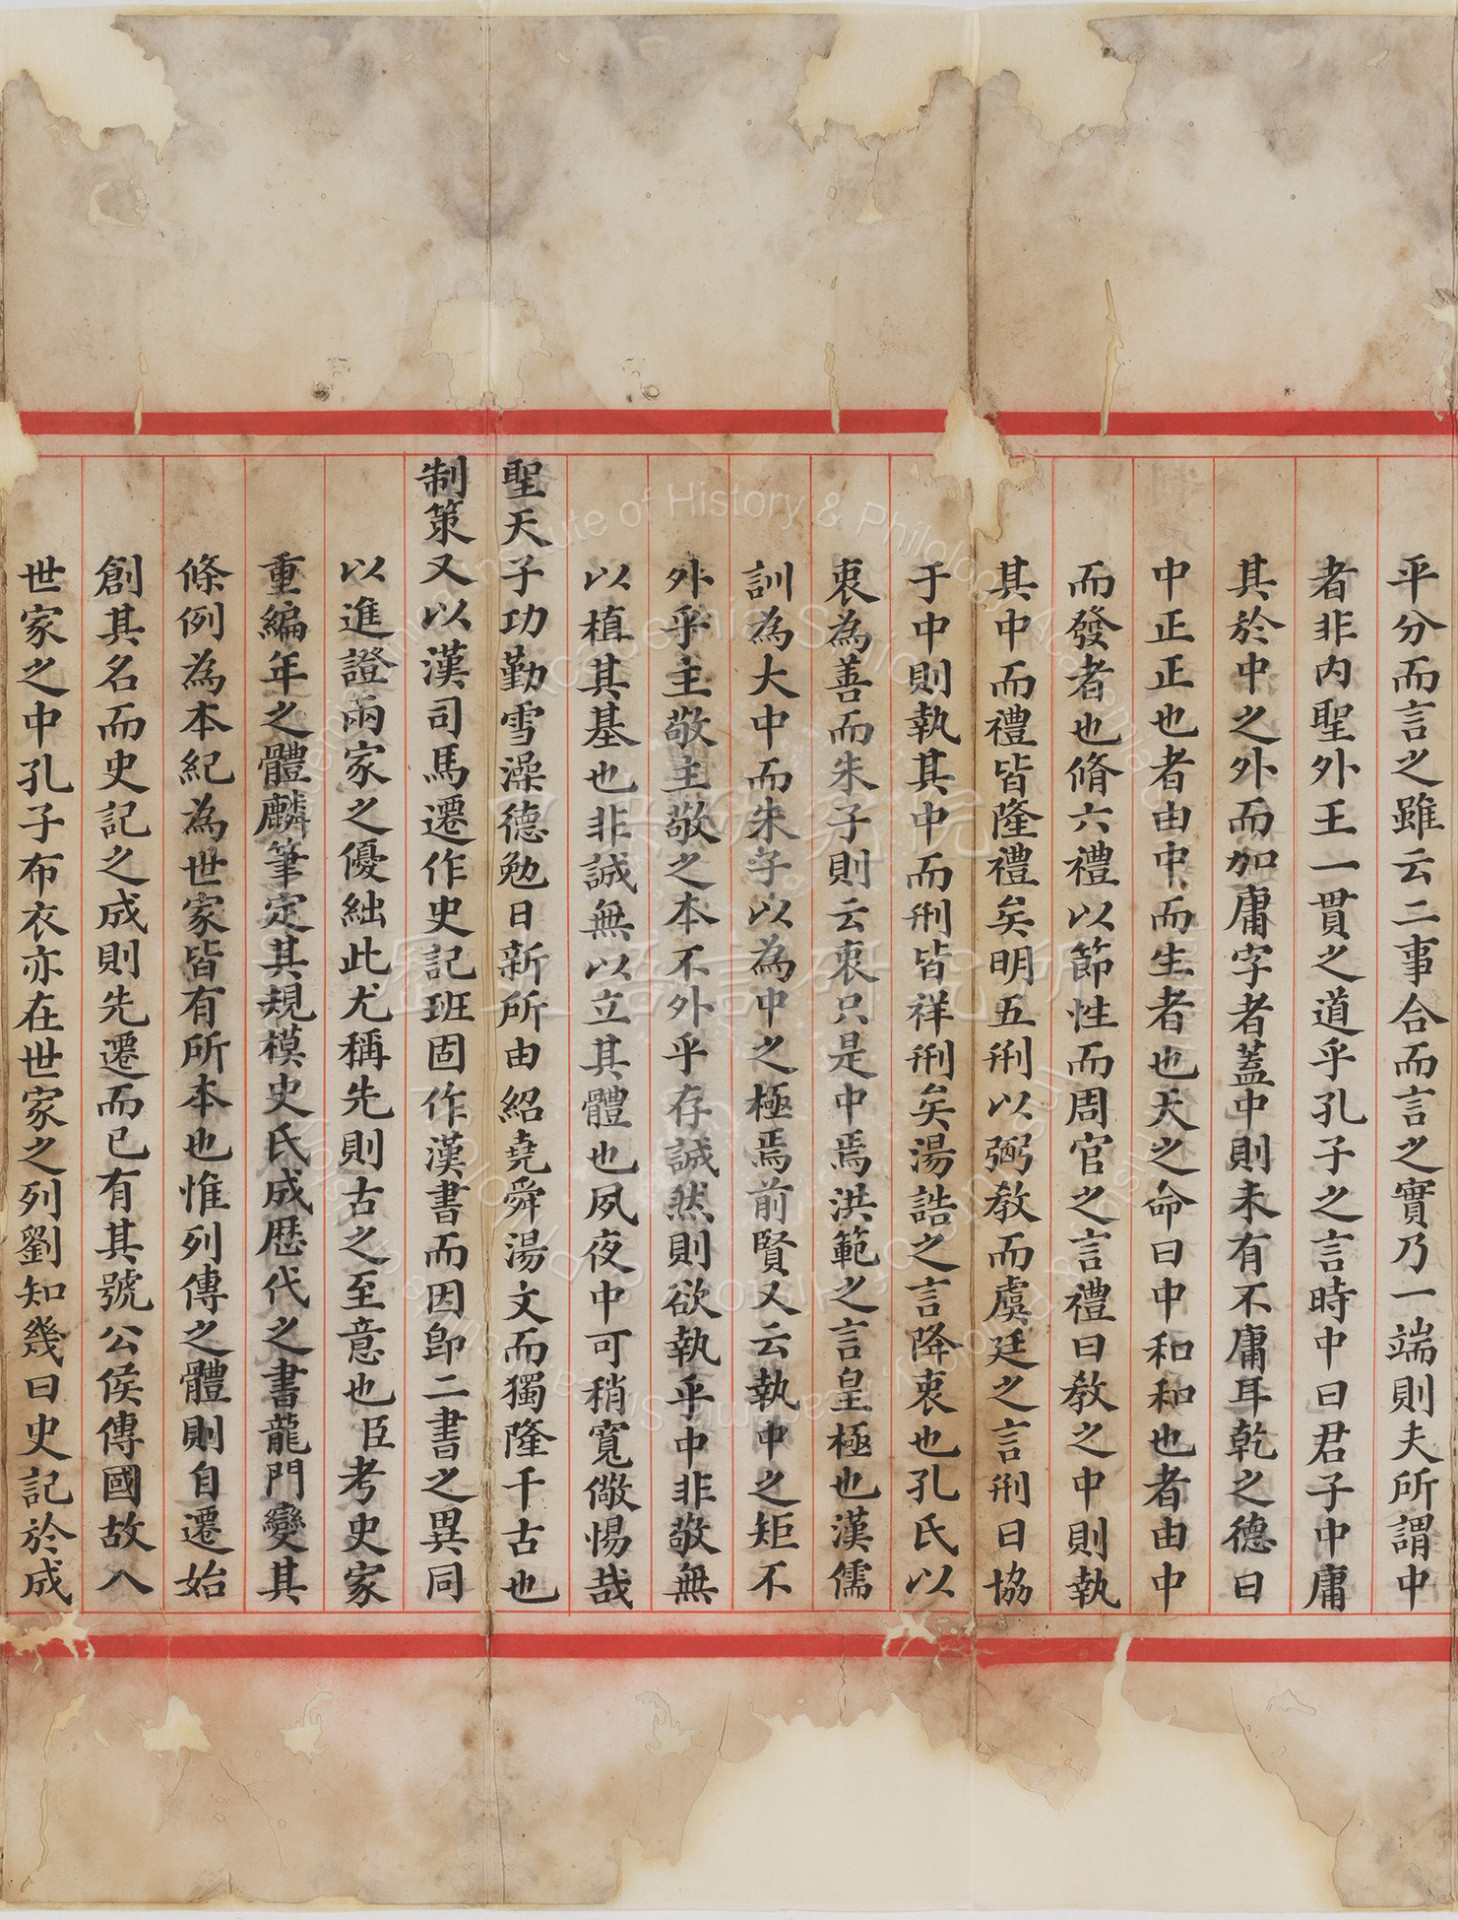 平分而言之雖云二事合而言之實乃一端則夫所謂中
者非內聖外王一貫之道乎孔子之言時中曰君子中庸
其於中之外而加庸字者蓋中則未有不庸耳乾之德曰
中正正也者由中而生者也天之命曰中和和也者由中
而發者也脩六禮以節性而周官之言禮曰教之中則執
其中而禮皆隆禮矣明五刑以弼教而虞廷之言刑曰協
于中則執其中而刑皆祥刑矣湯誥之言降衷也孔氏以
衷為善而朱子則云衷只是中焉洪範之言皇極也漢儒
訓為大中而朱子以為中之極焉前賢又云執中之矩不
外乎主敬主敬之本不外乎存誠然則欲執乎中非敬無
以植其基也非誠無以立其體也夙夜中可稍寬儆惕哉
聖天子功勤雪澡德勉日新所由紹堯舜湯文而獨隆千古也
制策又以漢司馬遷作史記班固作漢書而因卽二書之異同
以進證兩家之優絀此尤稱先則古之至意也臣考史家
重編年之體麟筆定其規模史氏成歷代之書龍門變其
條例為本紀為世家皆有所本也惟列傳之體則自遷始
創其名而史記之成則先遷而已有其號公侯傳國故入
世家之中孔子布衣亦在世家之列劉知幾曰史記於成
Academia Sinica
Institute of History & Philology
歷史語言研究所